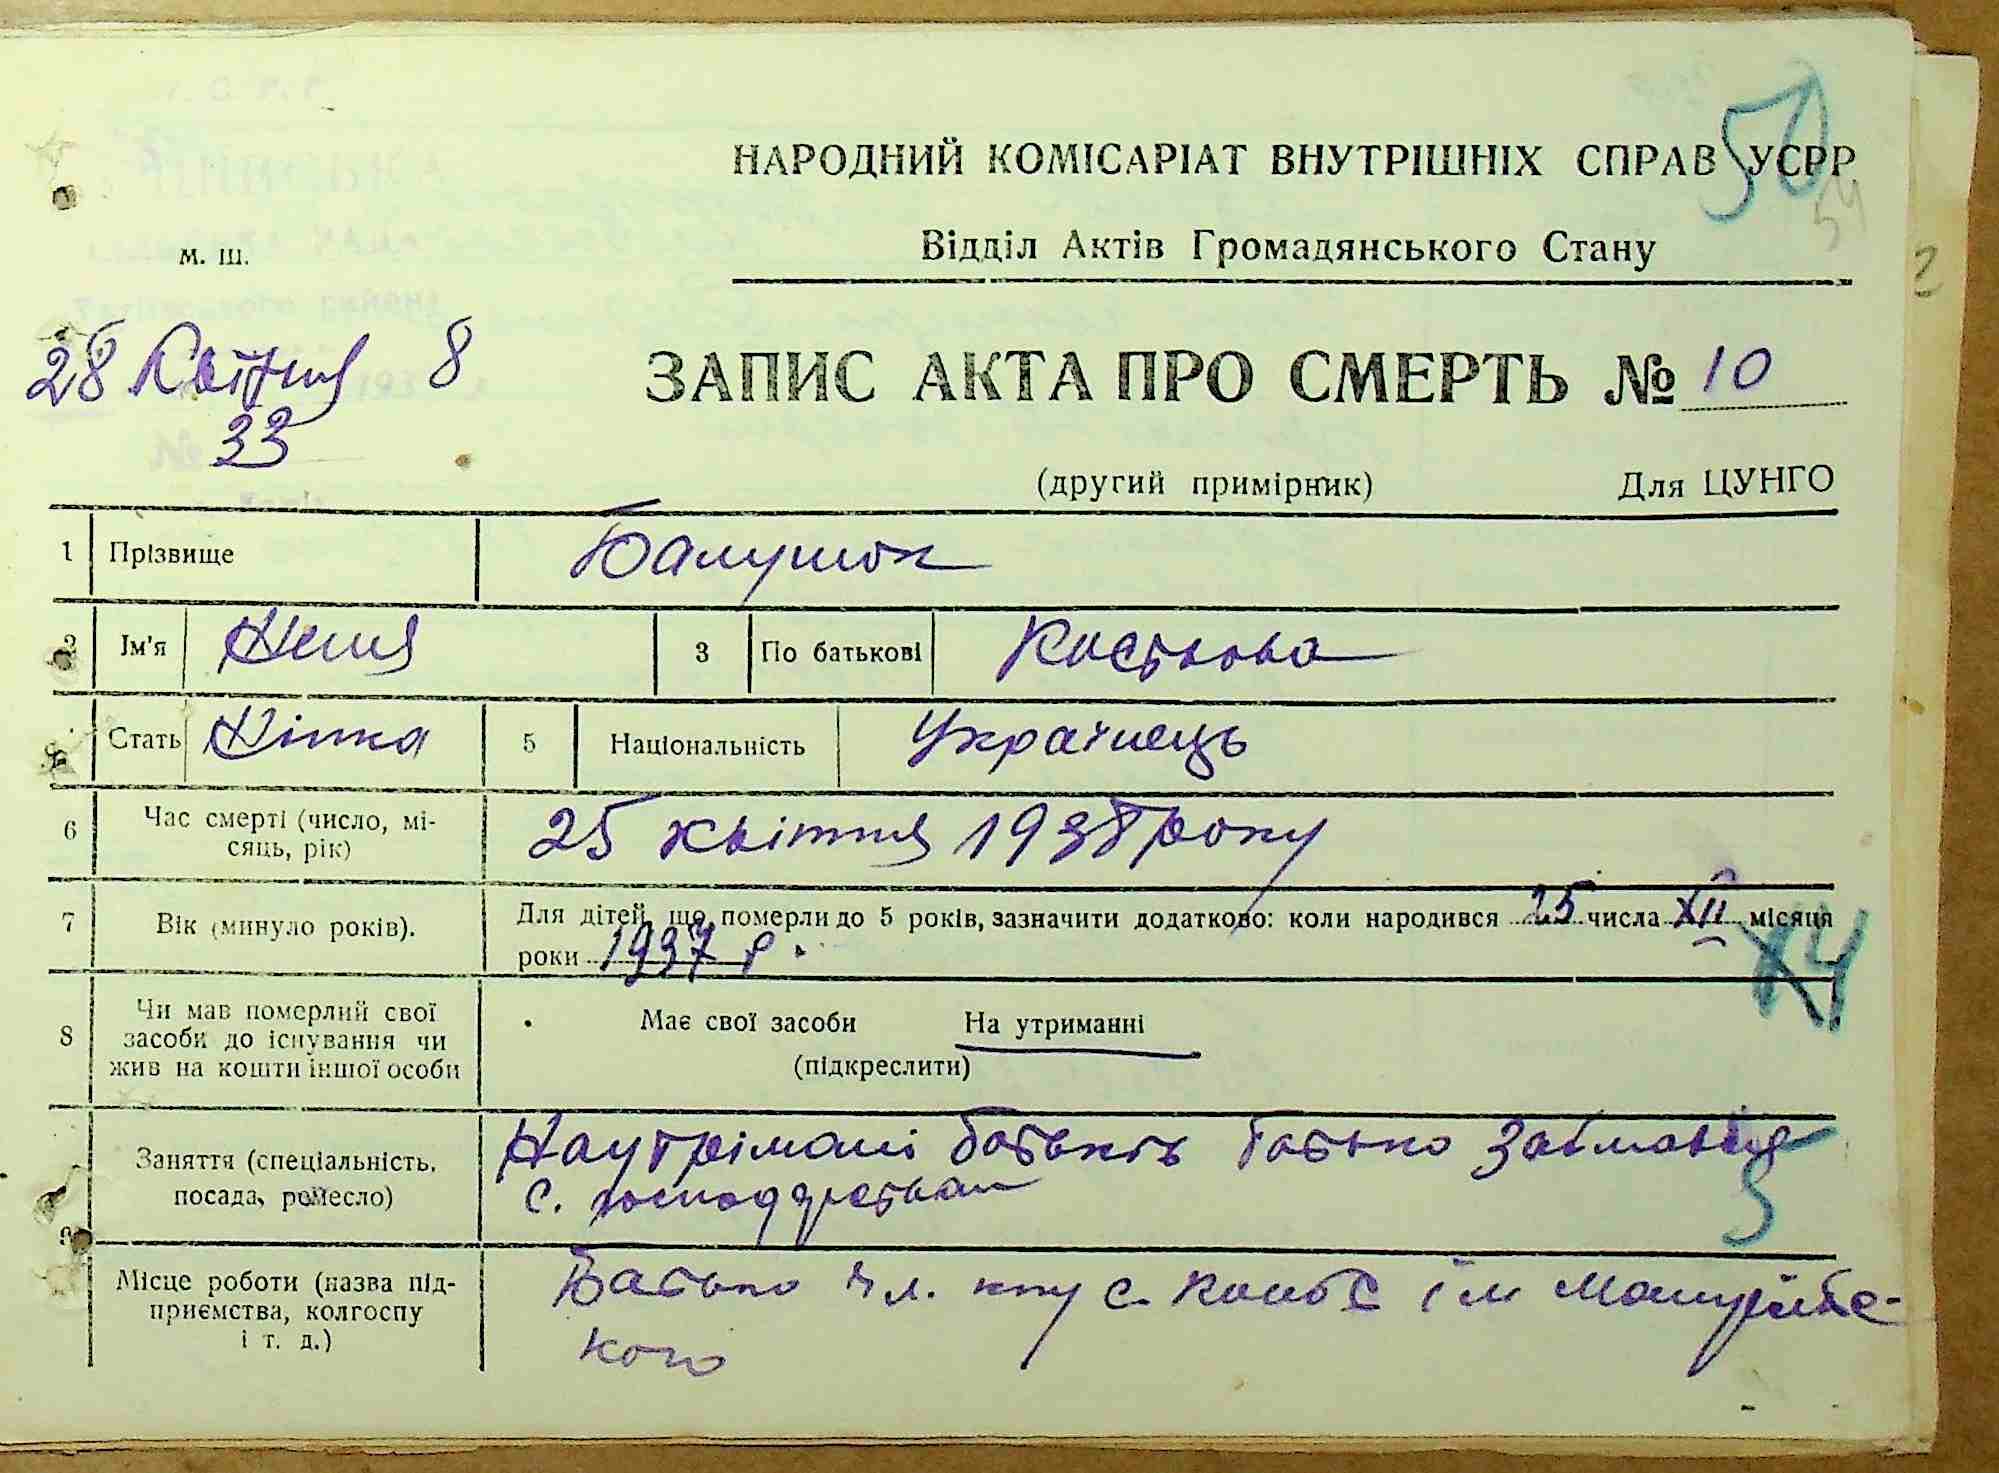 НАРОДНИЙ КОМІСАРІАТ ВНУТРІШНІХ СПРАВ УСРР
50
54
Відділ Актів Громадянського Стану
м. ш.
2
28 Квітня 8
33
ЗАПИС АКТА ПРО СМЕРТЬ № 10
(другий примірник) Для ЦУНГО
1 Прізвище Балушок
2 Ім'я 3 По батькові Костьова
Стать Жінка 5 Національність Українець
6 Час смерті (число, мі-
сяць, рік) 25 квітня 1938 року
7 Вік (минуло років). Для дітей, що померли до 5 років, зазначити додатково: коли народився 25 числа XII місяця
роки 1937 р.
8 Чи мав померлий свої
засоби до існування чи
жив на кошти іншої особи
Має свої засоби На утриманні
(підкреслити)
Заняття (спеціальність,
посада, ремесло)
На утрімані батьків батько
с.
9
Місце роботи (назва під-
приємства, колгоспу
і т. д.)
Батько чл. с. ім
кого